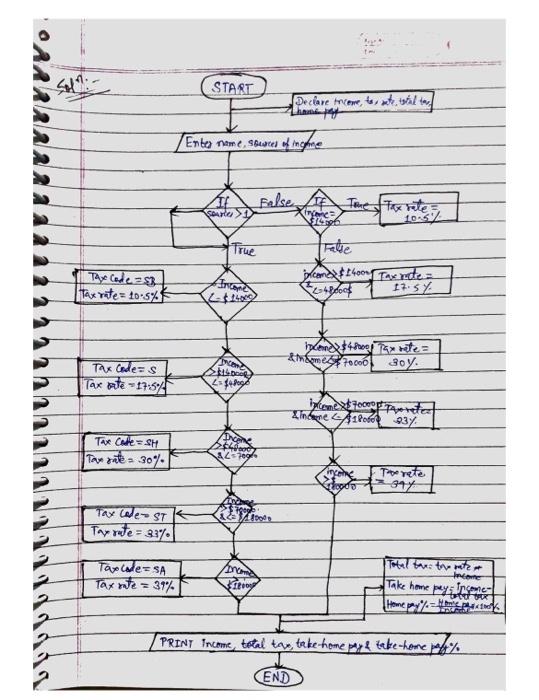 Solⁿ:-
START
Declare income, tax rate, total tax,
home pay
Enter name, sources of income
If
sources >1
False
If
income=
$14000
True
Tax rate =
10.5%
True
False
Tax Code = SB
Tax rate = 10.5%
Income
<= $14000
income>$14000
&
<=48000$
Tax rate =
17.5%
Tax Code = S
Tax rate = 17.5%
Income
>$14000
<=$48000
income>$48000
&Income<=$70000
Tax rate =
30%
Tax Code = SH
Tax rate = 30%
Income
>$48000
&<=70000
income>$70000
&Income <= $180000
Tax rate=
33%
Tax Code = ST
Tax rate = 33%
Income
>$70000
&<=$180000
income
>$
180000
Tax rate
= 39%
Tax Code = SA
Tax rate = 39%
Income
Total tax= tax rate *
Income
Take home pay=income-
total tax
Home pay%=Home pay x100%
Income
PRINT Income, total tax, take-home pay & take-home pay%
END